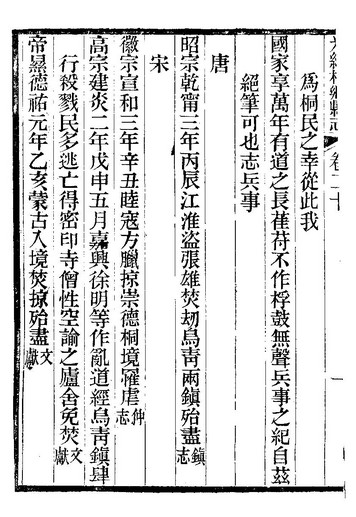 光緒桐鄉縣志 卷二十
為桐民之幸從此我
國家享萬年有道之長萑苻不作桴鼓無聲兵事之紀自茲
絕筆可也志兵事
唐
昭宗乾甯三年丙辰江淮盜張雄焚刧烏靑兩鎮殆盡鎮志
宋
徽宗宣和三年辛丑睦寇方臘掠崇德桐境罹虐仲志
高宗建炎二年戊申五月嘉興徐明等作亂道經烏靑鎮肆
行殺戮民多逃亡得密印寺僧性空諭之廬舍免焚文獻
帝㬎德祐元年乙亥蒙古入境焚掠殆盡文獻